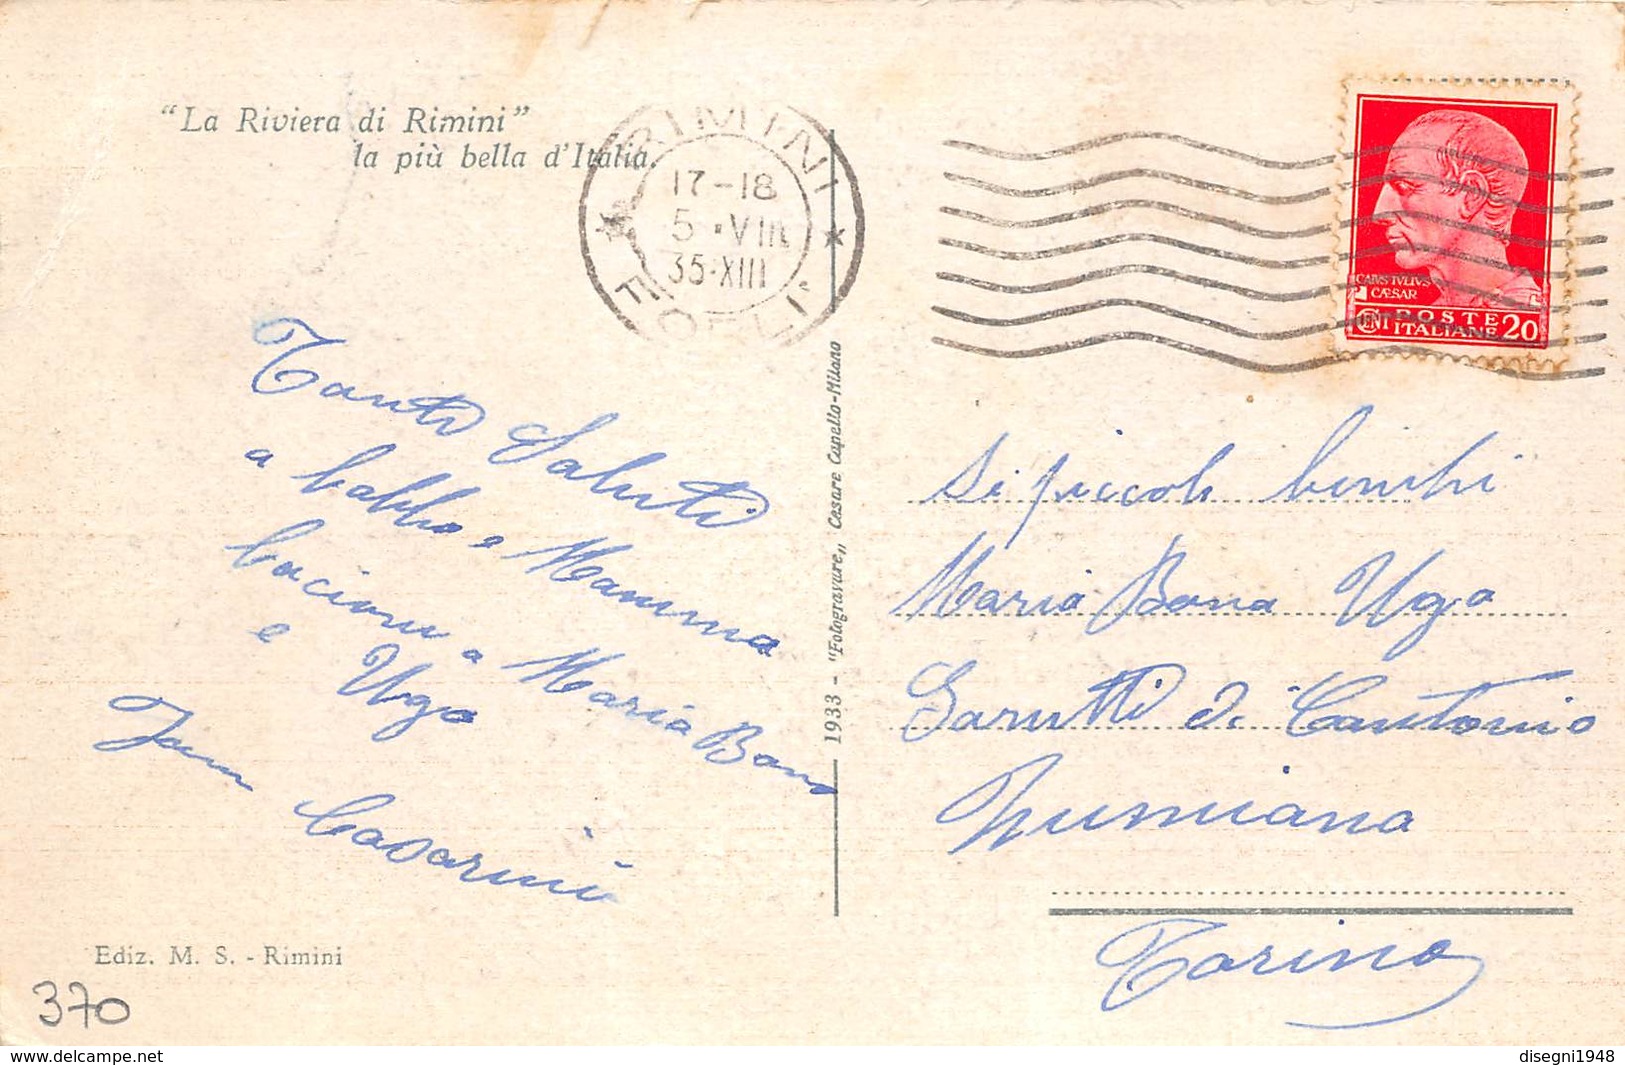 "La Riviera di Rimini"
la più bella d'Italia.
RIMINI
17-18
5·VIII
35·XIII
FORLI'
CAIVS IVLIVS
CÆSAR
CENT POSTE
ITALIANE 20
Tanti Saluti
a babbo e Mamma
bacioni a Maria Bona
e Ugo
Casarini
1933 - "Fotogravure„ Cesare Capello-Milano
piccoli bimbi
Maria Bona Ugo
Garutti di Cantonio
Torino
Ediz. M. S. - Rimini
370
http://www.delcampe.net
disegni1948